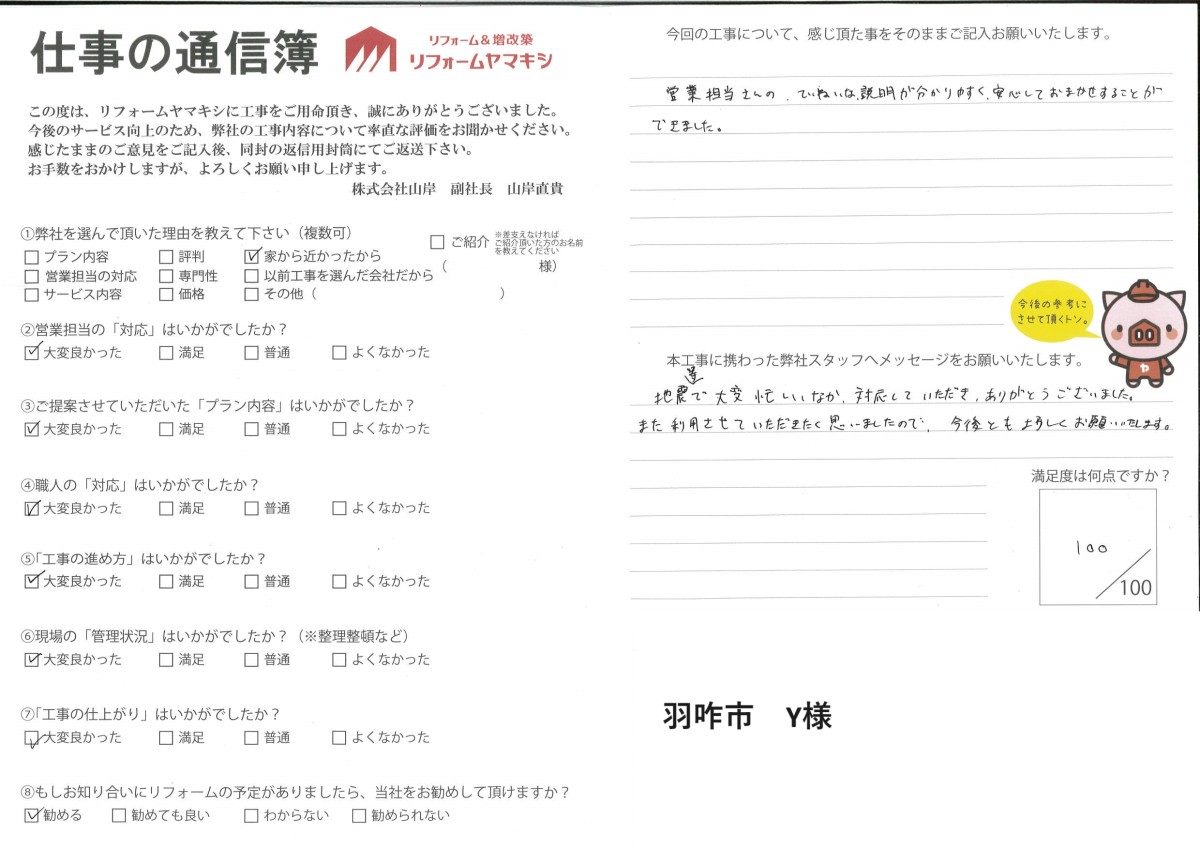 仕事の通信簿
リフォーム＆増改築
リフォームヤマキシ
この度は、リフォームヤマキシに工事をご用命頂き、誠にありがとうございました。
今後のサービス向上のため、弊社の工事内容について率直な評価をお聞かせください。
感じたままのご意見をご記入後、同封の返信用封筒にてご返送下さい。
お手数をおかけしますが、よろしくお願い申し上げます。
株式会社山岸　副社長　山岸直貴
①弊社を選んで頂いた理由を教えて下さい（複数可）
□ プラン内容　□ 評判　☑ 家から近かったから
□ 営業担当の対応　□ 専門性　□ 以前工事を選んだ会社だから
□ サービス内容　□ 価格　□ その他（　　　）
□ ご紹介
※差支えなければ
ご紹介頂いた方のお名前
を教えてください
（　　　様）
②営業担当の「対応」はいかがでしたか？
☑ 大変良かった　□ 満足　□ 普通　□ よくなかった
③ご提案させていただいた「プラン内容」はいかがでしたか？
☑ 大変良かった　□ 満足　□ 普通　□ よくなかった
④職人の「対応」はいかがでしたか？
☑ 大変良かった　□ 満足　□ 普通　□ よくなかった
⑤「工事の進め方」はいかがでしたか？
☑ 大変良かった　□ 満足　□ 普通　□ よくなかった
⑥現場の「管理状況」はいかがでしたか？（※整理整頓など）
☑ 大変良かった　□ 満足　□ 普通　□ よくなかった
⑦「工事の仕上がり」はいかがでしたか？
☑ 大変良かった　□ 満足　□ 普通　□ よくなかった
⑧もしお知り合いにリフォームの予定がありましたら、当社をお勧めして頂けますか？
☑ 勧める　□ 勧めても良い　□ わからない　□ 勧められない
今回の工事について、感じ頂た事をそのままご記入お願いいたします。
営業担当さんの、ていねいな説明が分かりやすく、安心しておまかせすることが
できました。
今後の参考に
させて頂くトン。
ヤ
本工事に携わった弊社スタッフへメッセージをお願いいたします。
地震で大変忙しいなか、対応していただき、ありがとうございました。
また利用させていただきたく思いましたので、今後ともよろしくお願いいたします。
満足度は何点ですか？
100
／100
羽咋市　Y様